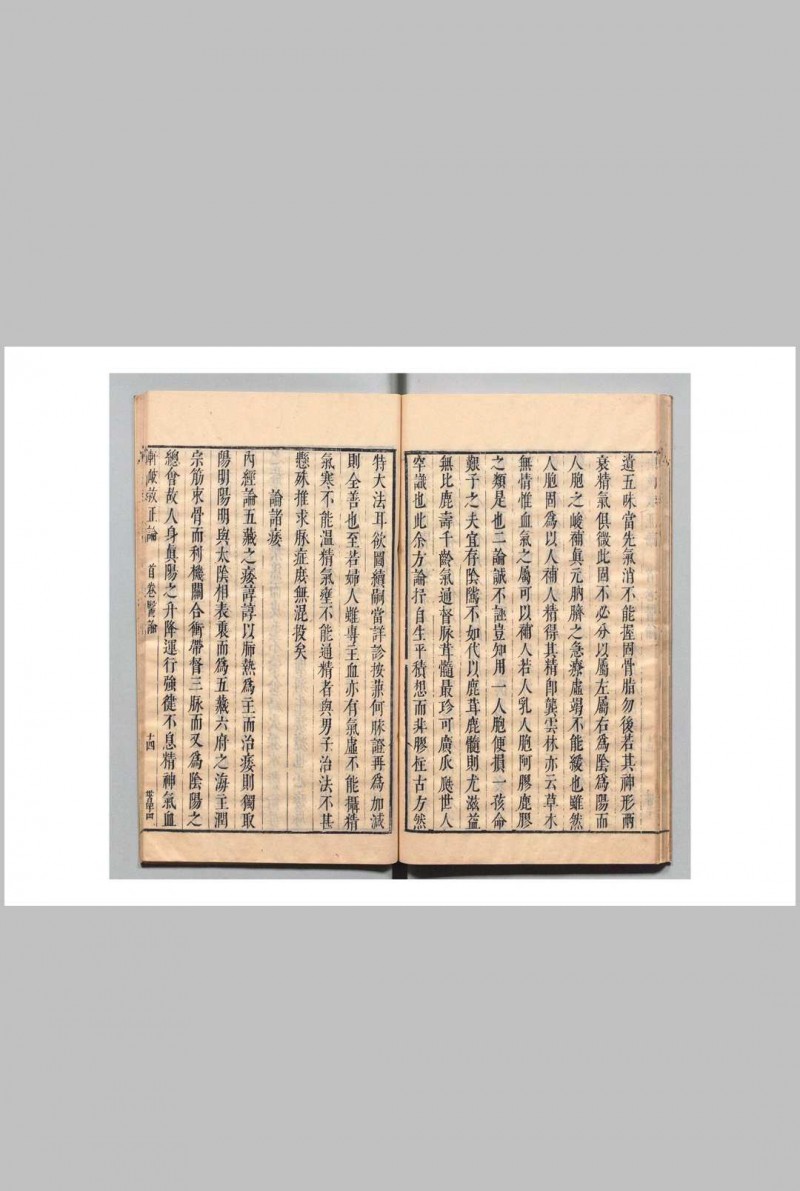 遺五味當先氣消不能握固骨脂勿後若其神形兩
衰精氣俱微此固不必分以屬左屬右爲陰爲陽而
人胞之峻補真元肭臍之急療虛竭不能緩也雖然
人胞固爲以人補人精得其精即龔雲林亦云草木
無情惟血氣之屬可以補人若人乳人胞阿膠鹿膠
之類是也二論誠不誣豈知用一人胞便損一孩命
艱子之夫宜存陰隲不如代以鹿茸鹿髓則尤滋益
無比鹿壽千齡氣通督脉茸髓最珍可廣承颷世人
罕識也此余方論抒自生平積想而非膠柱古方然
特大法耳欲圖續嗣當詳診按兼何脉證再爲加減
則全善也至若婦人雖專主血亦有氣虛不能攝精
氣寒不能溫精氣壅不能通精者與男子治法不甚
懸殊推求脉症庶無混投矣
論諸痿
內經論五藏之痿諄諄以肺熱爲主而治痿則獨取
陽明陽明與太陰相表裏而爲五藏六府之海主潤
宗筋束骨而利機關合衝帶督三脉而又爲陰陽之
總會故人身真陽之升降運行強健不息精神氣血
軒岐救正論 首卷醫論 十四